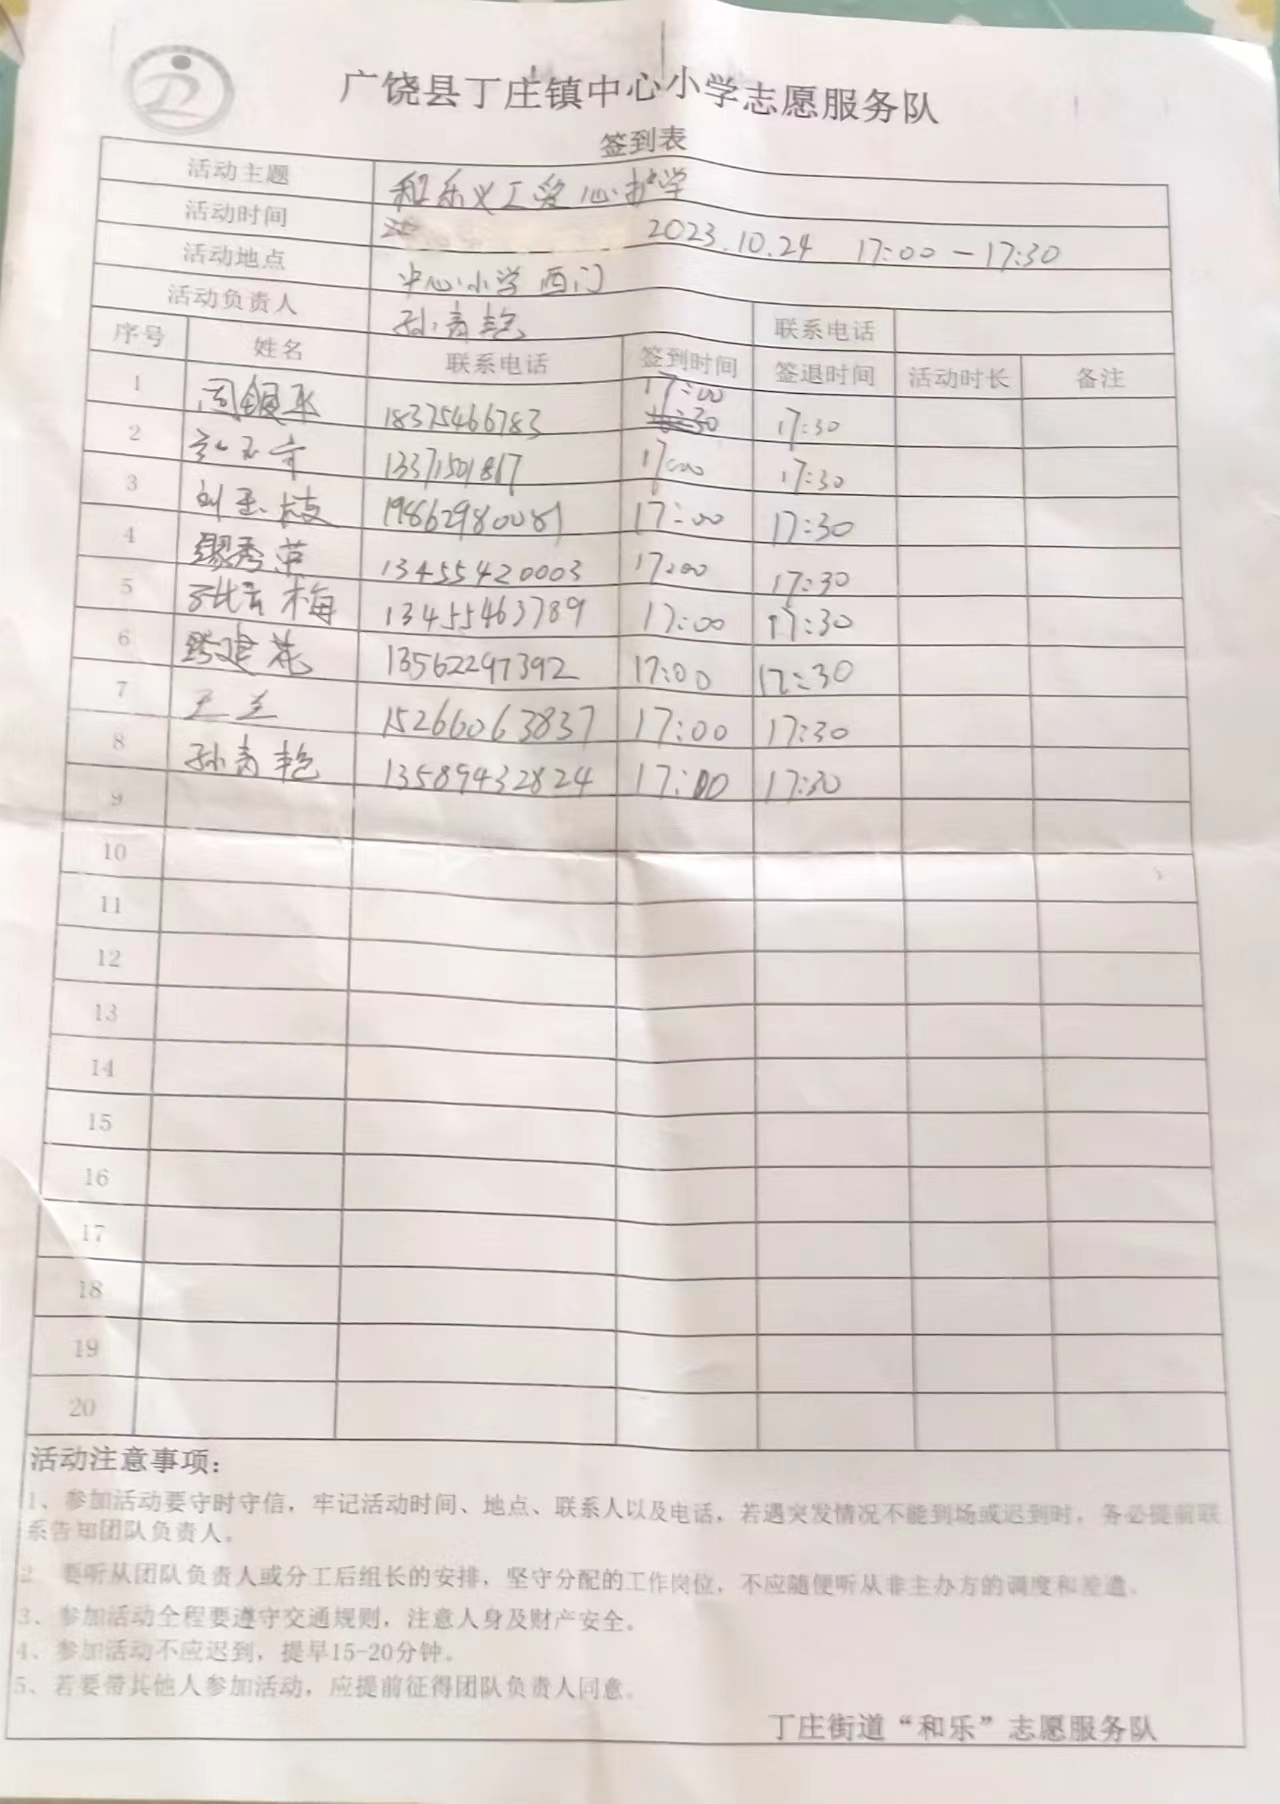 广饶县丁庄镇中心小学志愿服务队
签到表
活动主题 和乐义工爱心护学
活动时间 2023.10.24 17:00-17:30
活动地点 中心小学西门
活动负责人 孙青艳 联系电话
序号 姓名 联系电话 签到时间 签退时间 活动时长 备注
1 18375466783 17:00 17:30
2 13371501817 17:00 17:30
3 刘玉枝 19862980081 17:00 17:30
4 缪秀荣 13455420003 17:00 17:30
5 梅 13455463789 17:00 17:30
6 建花 13562297392 17:00 17:30
7 王兰 15266063837 17:00 17:30
8 孙青艳 13589432824 17:00 17:30
9
10
11
12
13
14
15
16
17
18
19
20
活动注意事项：
1、参加活动要守时守信，牢记活动时间、地点、联系人以及电话，若遇突发情况不能到场或迟到时，务必提前联
系告知团队负责人。
2 要听从团队负责人或分工后组长的安排，坚守分配的工作岗位，不应随便听从非主办方的调度和差遣。
3、参加活动全程要遵守交通规则，注意人身及财产安全。
4、参加活动不应迟到，提早15-20分钟。
5、若要带其他人参加活动，应提前征得团队负责人同意。
丁庄街道“和乐”志愿服务队